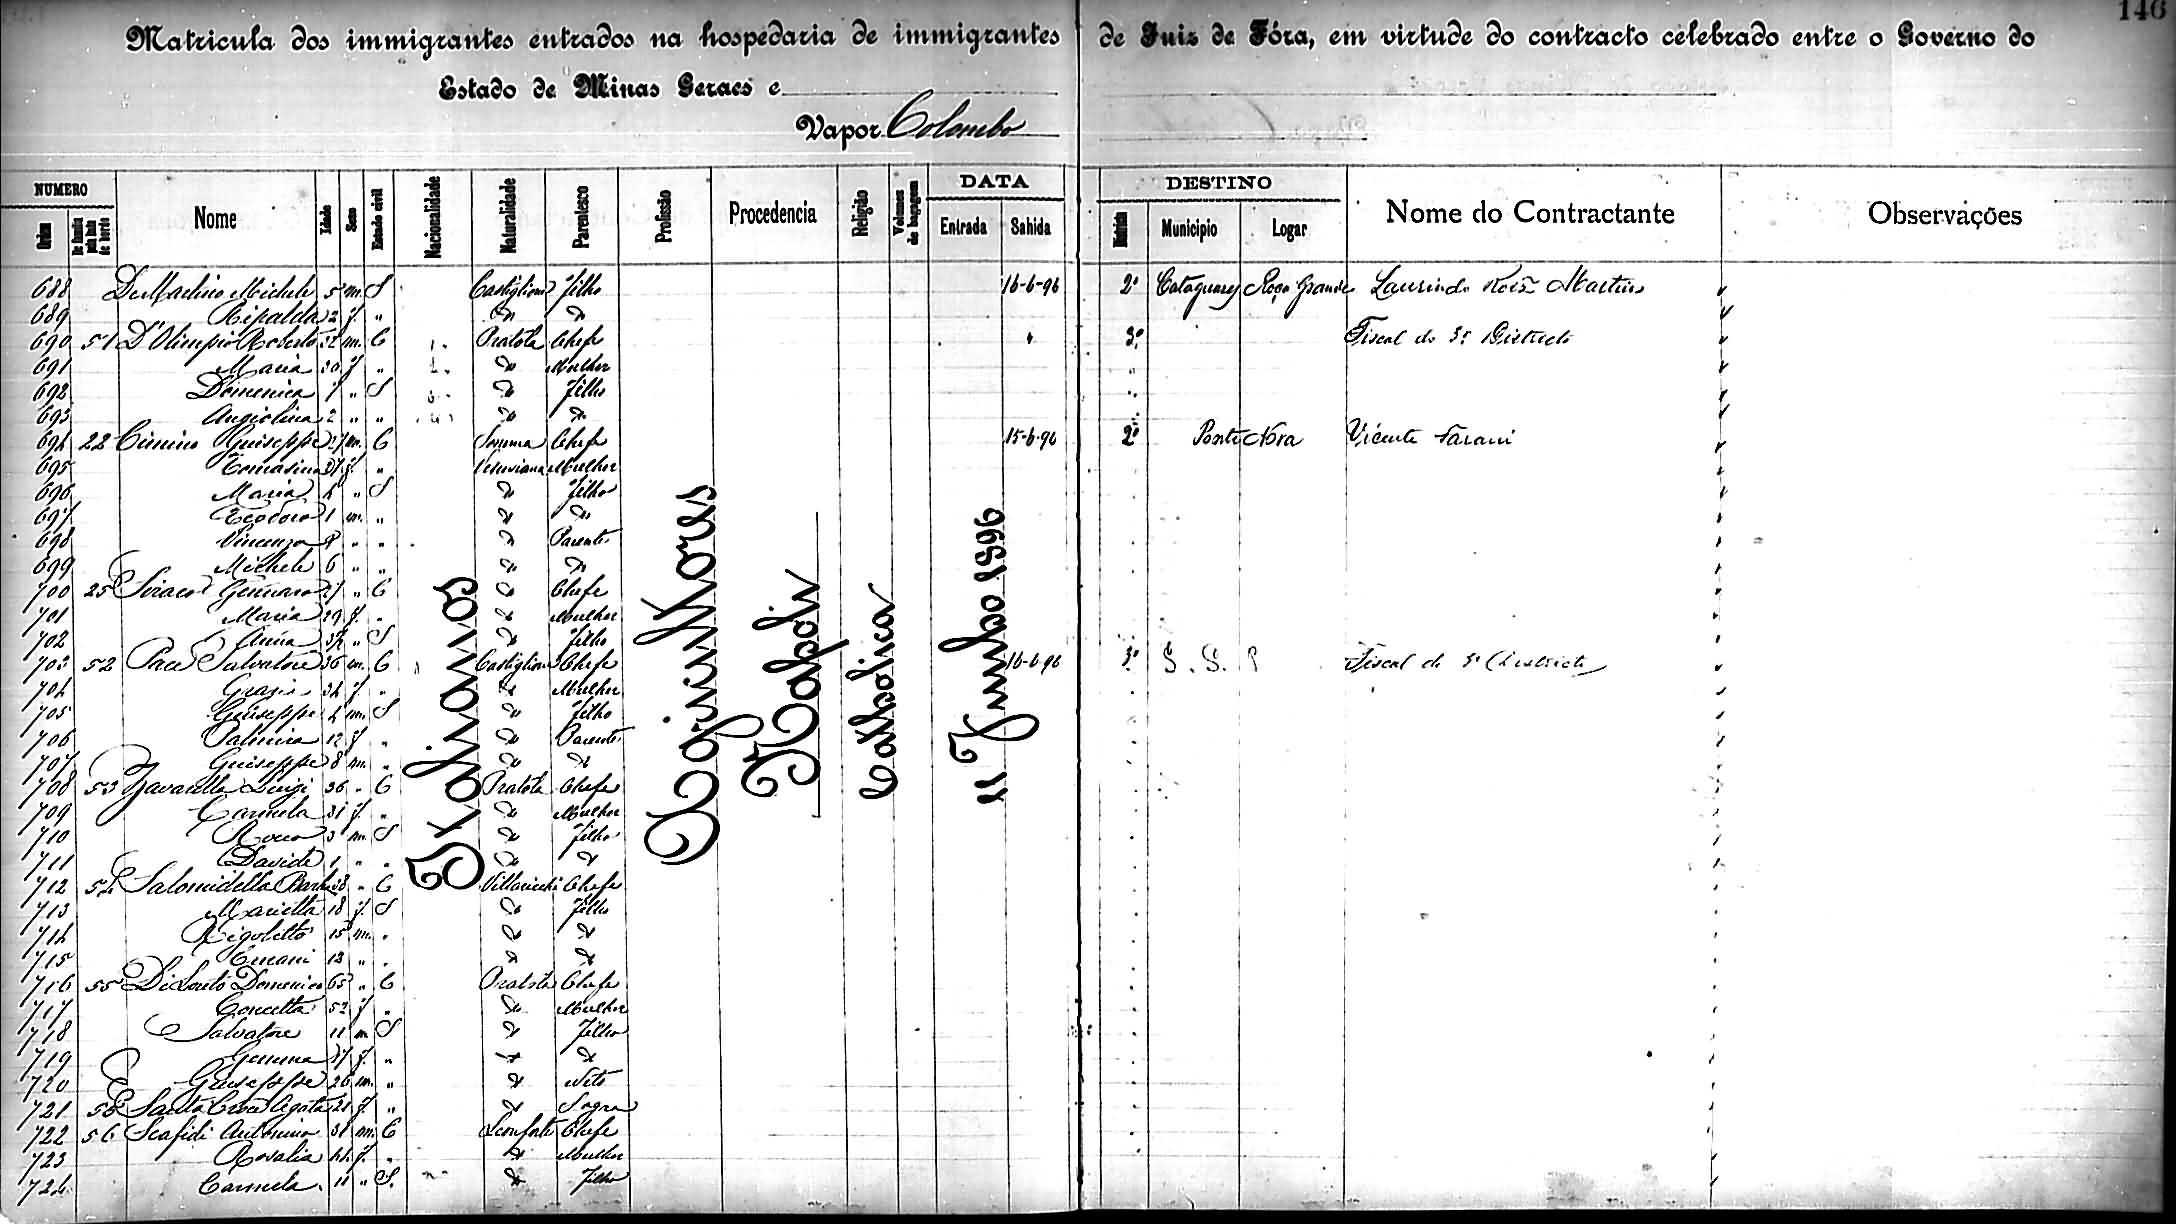 146
Matricula dos immigrantes entrados na hospedaria de immigrantes de Juiz de Fóra, em virtude do contracto celebrado entre o Governo do
Estado de Minas Geraes e
Vapor Colombo
NUMERO Nome Idade Sexo Estado civil Nacionalidade Naturalidade Parentesco Profissão Procedencia Religião Volumes de bagagem DATA DESTINO Nome do Contractante Observações
Ordem De familia pela lista de bordo Entrada Sahida Districto Municipio Logar
Italianos Agricultores Napoli Catholica 11 Junho 1896
688 Michele 5 m. S Castiglione Filho 16-6-96 2º Cataguazes Laurindo Martins
689 2 f. "
690 51 D'Olimpio Roberto 32 m. C Pratola Chefe " 3º Fiscal do 3º Districto
691 Maria 30 f " Mulher
692 Domenica 7 " S Filho
693 Angiolina 2 " "
694 22 Cimino Guiseppe 27 m. C Somma Chefe 15-6-96 2º Ponte Nova Vicente
695 Tomasina 27 f. " Vesuviana Mulher
696 Maria 4 " S Filho
697 Teodoro 1 m. "
698 Vincenzo 8 " " Parente
699 Michele 6 " "
700 25 Gennaro 27 " C Chefe
701 Maria 29 f. " Mulher
702 Anna " S Filho
703 52 Pace Salvatore 36 m. C Castiglione Chefe 16-6-96 3º Fiscal do 3º Districto
704 34 f " Mulher
705 Guiseppe 4 m. S Filho
706 Palmira 12 f " Parente
707 Guiseppe 8 m. "
708 53 Zavarella Luigi 36 " C Pratola Chefe
709 Carmela 31 f. " Mulher
710 Rocco 3 m. S Filho
711 Davide 1 " "
712 54 38 " C Chefe
713 Marietta 18 f. S Filho
714 Rigoletto 15 m. "
715 Ernani 13 " "
716 55 Di Loreto Domenico 65 " C Pratola Chefe
717 Concetta 52 f " Mulher
718 Salvatore 11 m S Filho
719 Gemma 27 f. "
720 Giuseppe 26 m. " Neto
721 Santa Croce Agata 21 f. " Sogra
722 56 Scafidi Antonino 31 m. C Leonforte Chefe
723 Rosalia 44 f. " Mulher
724 Carmela 11 " S. Filho